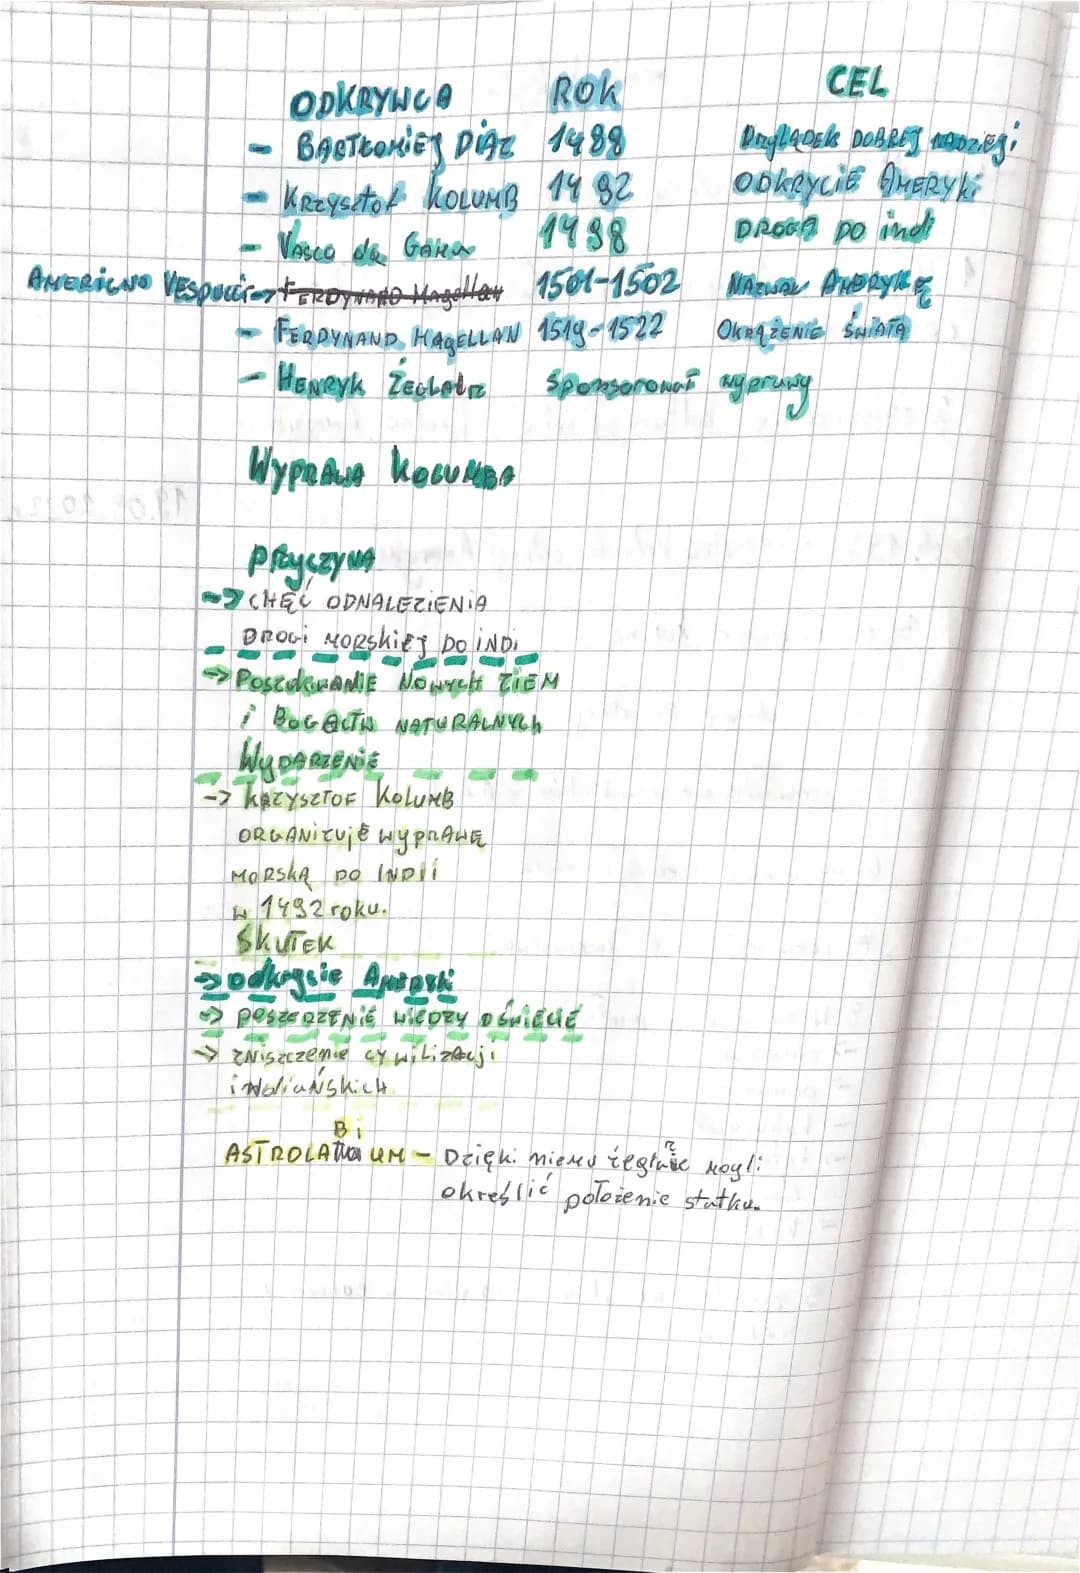 ODKRYWCA ROK CEL
- BARTŁOMIEJ DIAZ 1488 PRZYLĄDEK DOBREJ NADZIEJI
- KRZYSZTOF KOLUMB 1492 ODKRYCIE AMERYKI
- VASCO da GAMA 1498 DROGA DO indi
AMERIGNO VESPUCCI -> FERDYNAND Magellan 1501-1502 NAZWAŁ AMERYKĘ
- FERDYNAND MAGELLAN 1519-1522 OKRĄŻENIE ŚWIATA
- HENRYK ŻEGLARZ Sponsorował wyprawy
WYPRAWA KOLUMBA
PRZYCZYNA
-> CHĘĆ ODNALEZIENIA
DROGI MORSKIEJ DO INDI
-> POSZUKIWANIE NOWYCH ZIEM
i BOGACTW NATURALNYCH
WYDARZENIE
-> KRZYSZTOF KOLUMB
ORGANIZUJE WYPRAWĘ
MORSKĄ DO INDII
w 1492 roku.
SKUTEK
-> odkrycie AMERYKI
-> POSZERZENIE WIEDZY O ŚWIECIE
-> ZNISZCZENIE CYWILIZACJI
INDIAŃSKICH
BI
ASTROLA UM - Dzięki niemu żeglarze mogli
określić położenie statku.